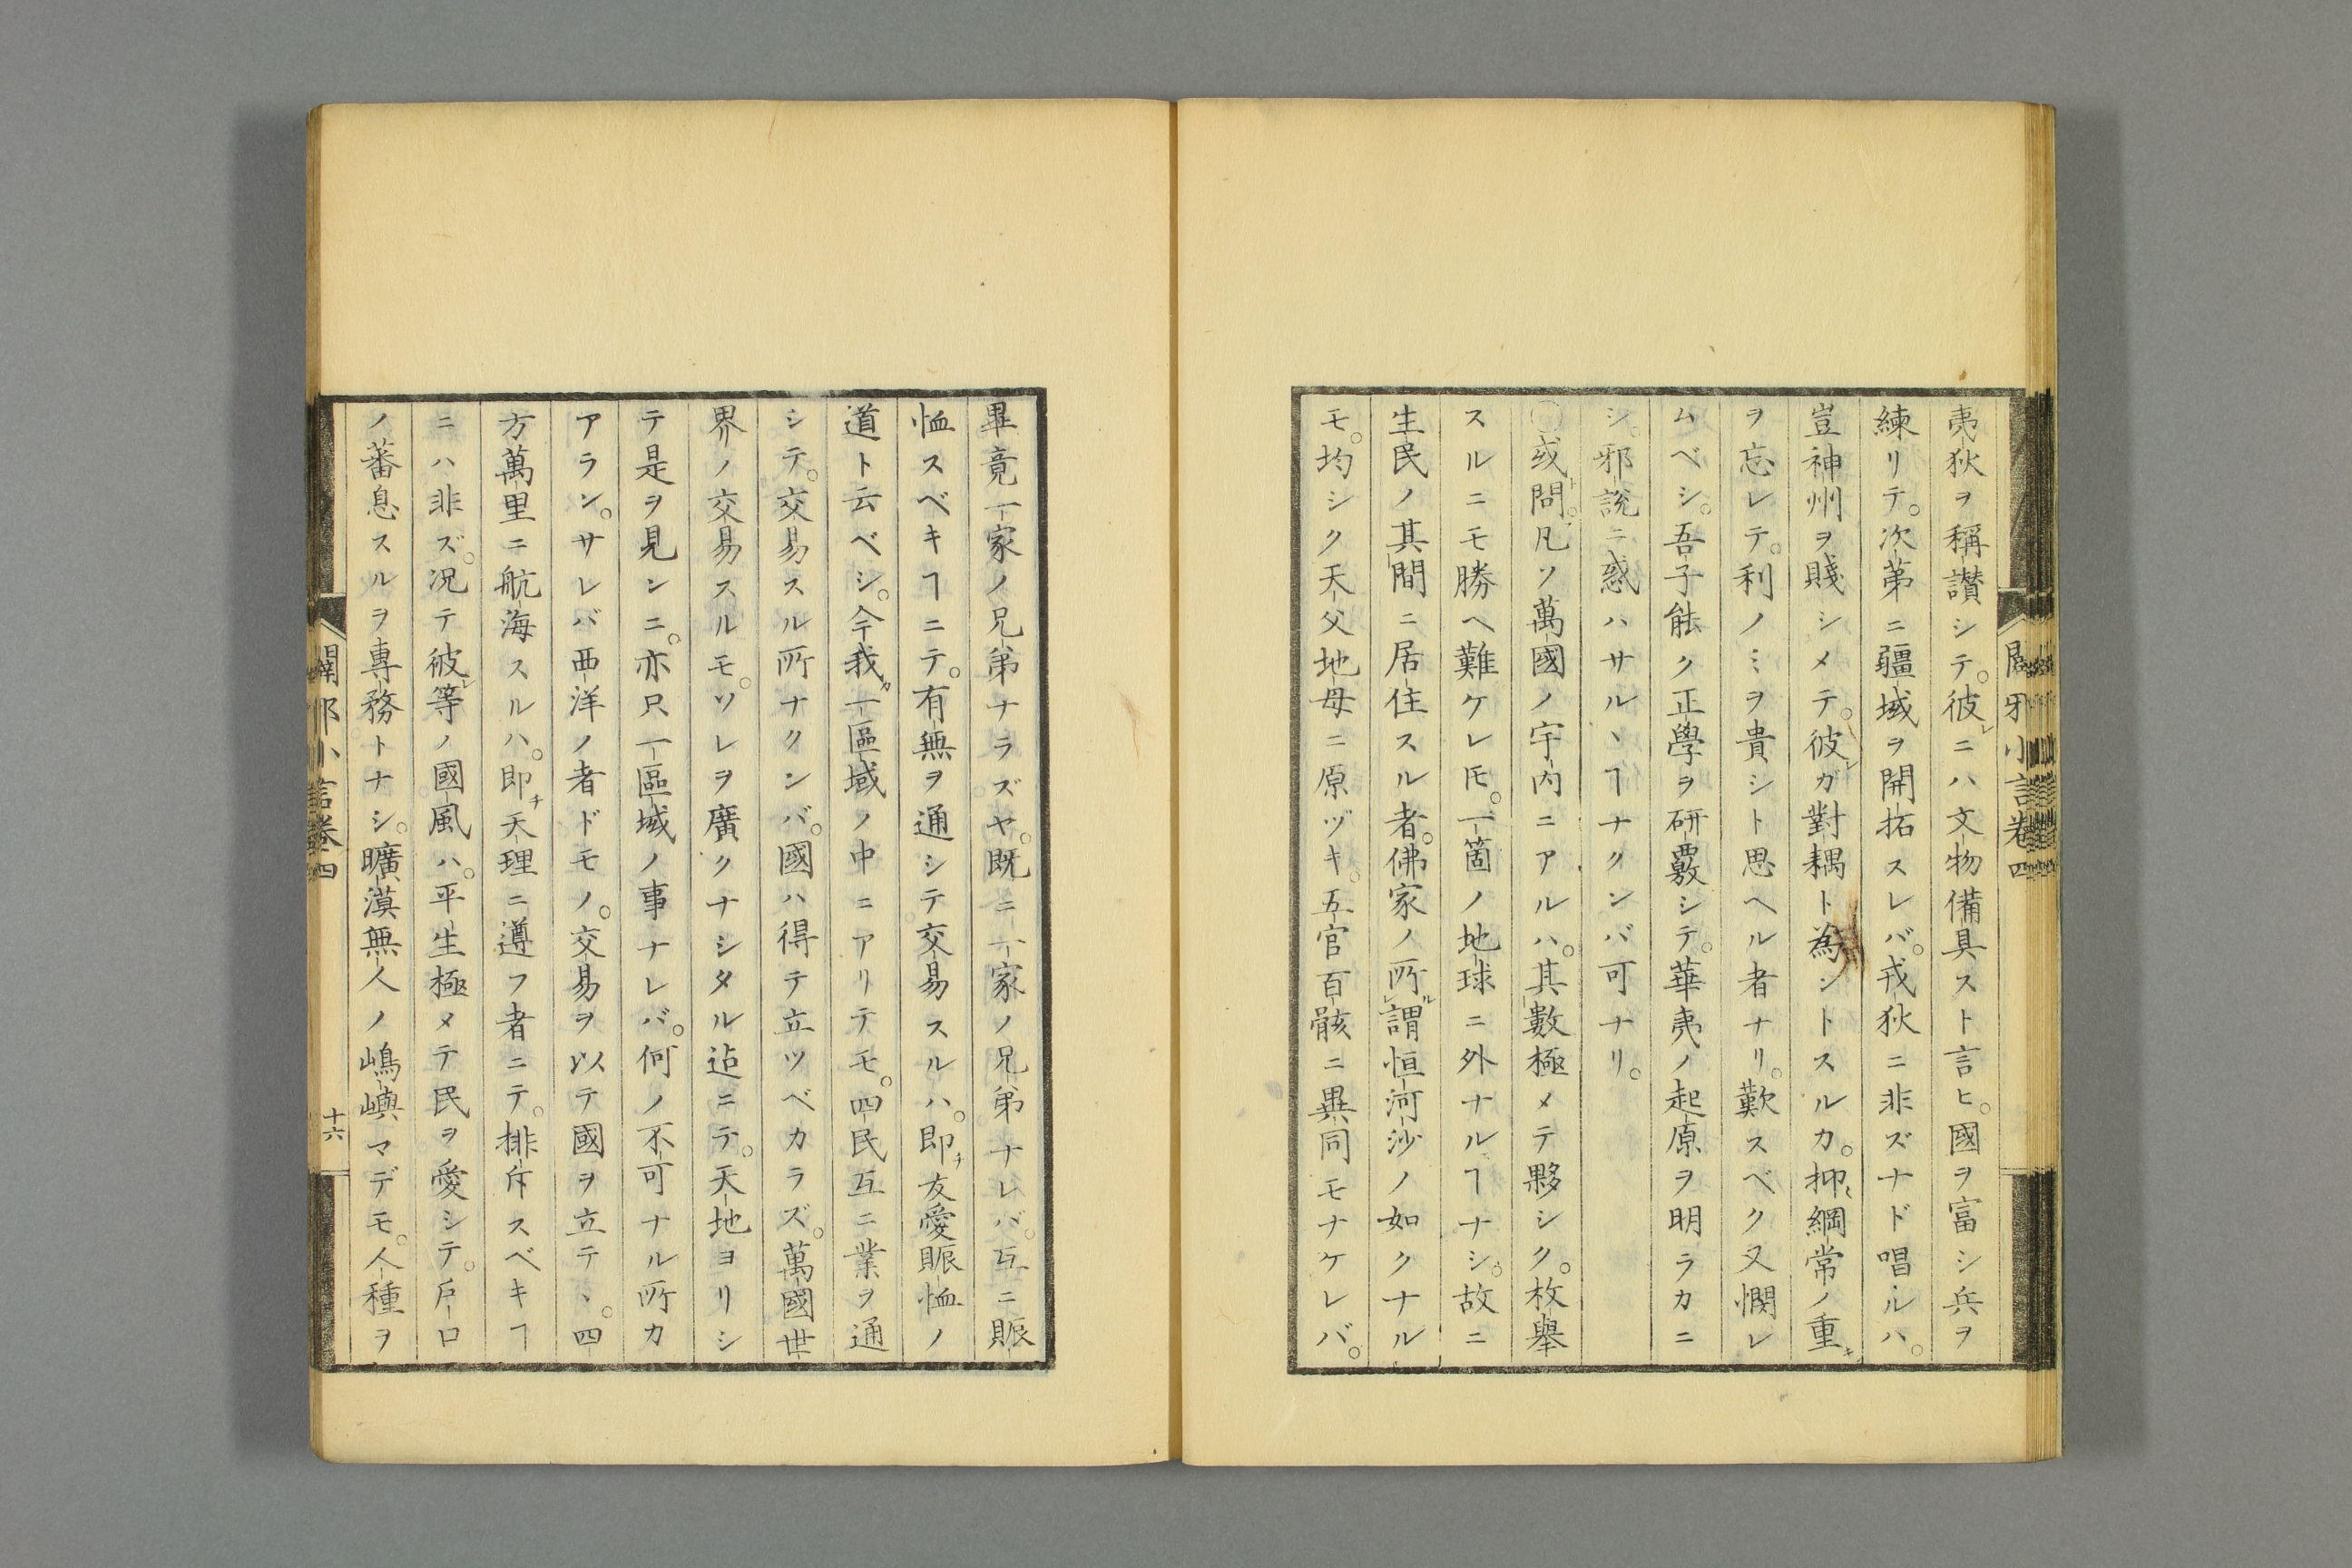 闢邪小言卷四
夷狄ヲ稱讃シテ。彼レニハ文物備具スト言ヒ。國ヲ富シ兵ヲ
練リテ。次第ニ疆域ヲ開拓スレバ。戎狄ニ非ズナド唱ルハ。
豈神州ヲ賤シメテ。彼レガ對耦ト為ントスルカ。抑ミ綱常ノ重キ
ヲ忘レテ。利ノミヲ貴シト思ヘル者ナリ。歎スベク又憫レ
ムベシ。吾子能ク正學ヲ研覈シテ。華夷ノ起原ヲ明ラカニ
シ。邪說ニ惑ハサルヽヿナクンバ可ナリ。
○或問。凡ソ萬國ノ宇内ニアルハ。其數極メテ夥シク。枚擧
スルニモ勝ヘ難ケレ𪜈。一箇ノ地球ニ外ナルヿナシ。故ニ
生民ノ其間ニ居住スル者。佛家ノ所ル謂レ恒河沙ノ如クナル
モ。均シク天父地母ニ原ヅキ。五官百骸ニ異同モナケレバ。
畢竟一家ノ兄弟ナラズヤ。既ニ一家ノ兄弟ナレバ。互ニ賑
恤スベキヿニテ。有無ヲ通シテ交易スルハ。即チ友愛賑恤ノ
道ト云ベシ。今我カ一區域ノ中ニアリテモ。四民互ニ業ヲ通
シテ。交易スル所ナクンバ。國ハ得テ立ツベカラズ。萬國世
界ノ交易スルモ。ソレヲ廣クナシタル迠ニテ。天地ヨリシ
テ是ヲ見ンニ。亦只一區域ノ事ナレバ。何ノ不可ナル所カ
アラン。サレバ西洋ノ者ドモノ。交易ヲ以テ國ヲ立テヽ。四
方萬里ニ航海スルハ。即チ天理ニ遵フ者ニテ。排斥スベキヿ
ニハ非ズ。況テ彼レ等ノ國風ハ。平生極メテ民ヲ愛シテ。戶口
ノ蕃息スルヲ專務トナシ。曠漠無人ノ嶋嶼マデモ。人種ヲ
闢邪小言卷四
十六